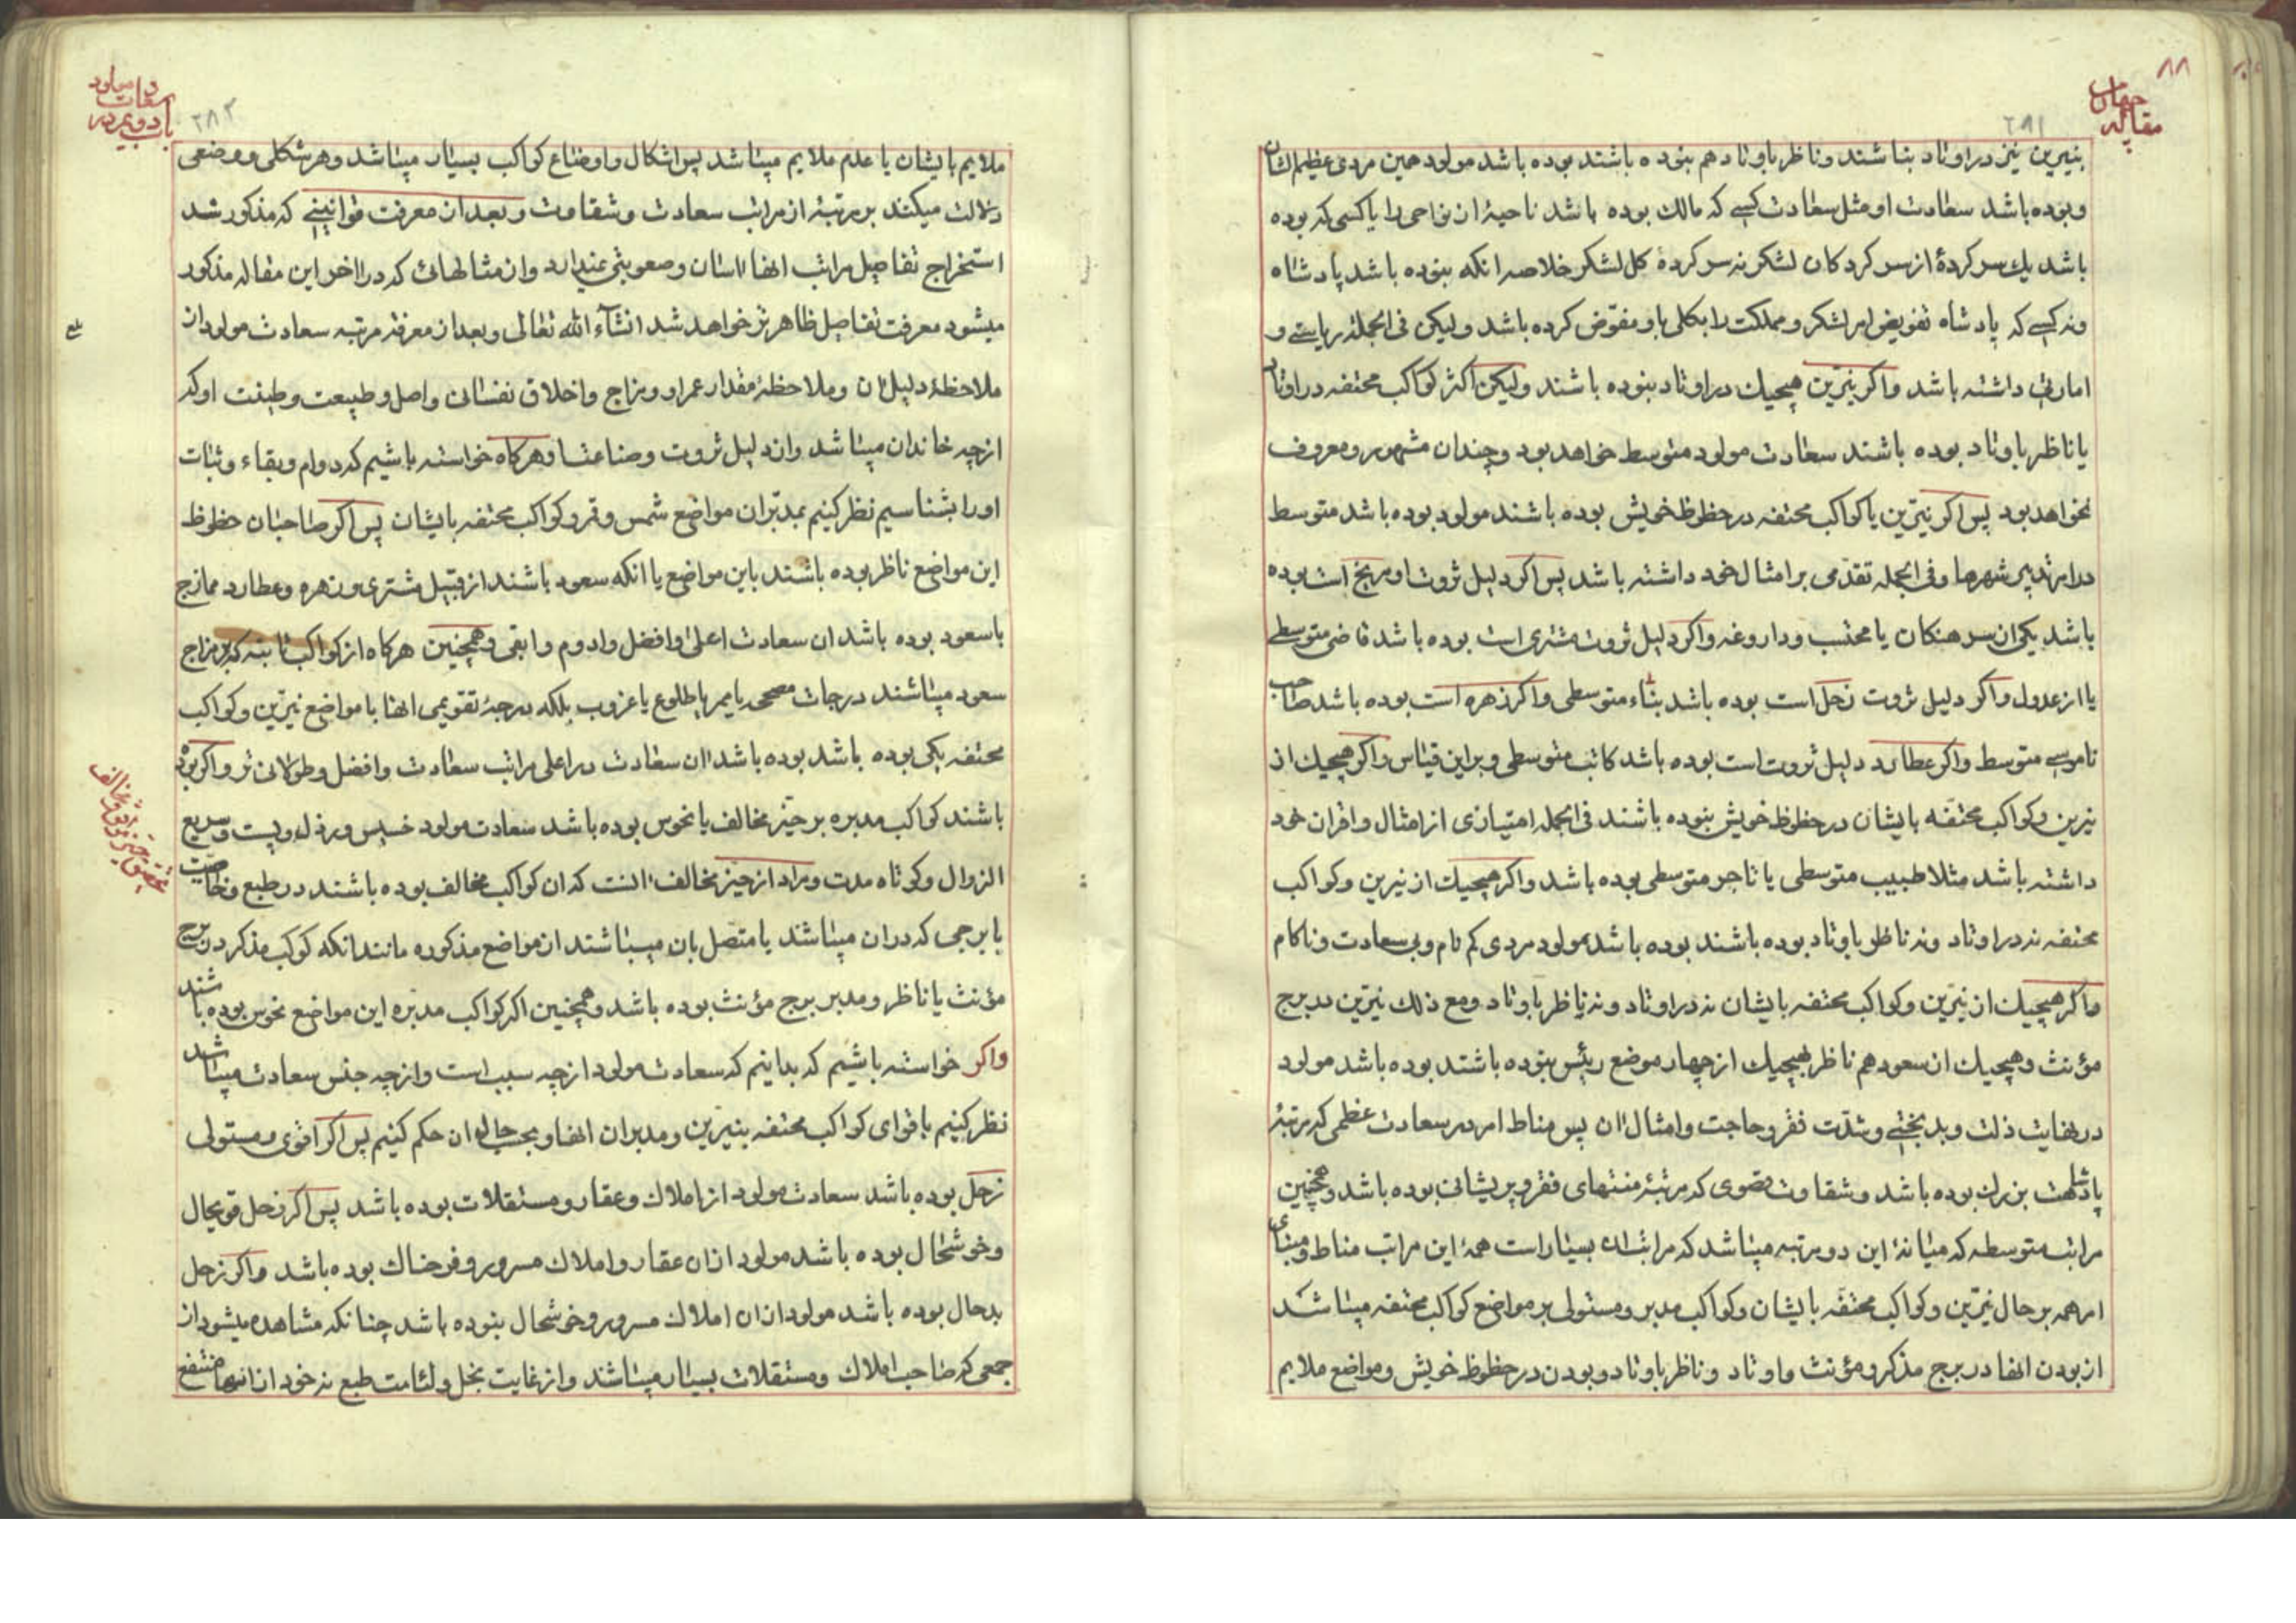 ۸۸
مقاله چهارم
۲۸۱
بنیرین نیز در اوتاد نباشند و ناظر باوتاد هم نبوده باشند بوده باشد مولود همین مردی عظیم الشان
و بوده باشد سعادت او مثل سعادت کسی که مالک بوده باشد ناحیهٔ از نواحی را یا کسی که بوده
باشد یک سر کردهٔ از سر کردکان لشکر نه سر کردهٔ کل لشکر خلاصه انکه نبوده باشد پادشاه
و نه کسی که پادشاه تفویض امر لشکر و مملکت را بکلی باو مفوّض کرده باشد ولیکن فی الجمله ریاستی و
امارتی داشته باشد و اکر نیّرین هیچیک در اوتاد نبوده باشند ولیکن اکثر کواکب محتفه در اوتاد
یا ناظر باوتاد بوده باشند سعادت مولود متوسط خواهد بود و چندان مشهور و معروف
نخواهد بود پس اکر نیّرین یا کواکب محتفه در حظوظ خویش بوده باشند مولود بوده باشد متوسط
در امر تدبیر شهرها و فی الجمله تقدّمی بر امثال خود داشته باشد پس اکر دلیل ثروت او مریخ است بوده
باشد یکی از سرهنکان یا محتسب و داروغه و اکر دلیل ثروت مشتری است بوده باشد قاضی متوسطی
یا از عدول و اکر دلیل ثروت زحل است بوده باشد بنّاء متوسطی و اکر زهره است بوده باشد صاحب
ناموسی متوسط و اکر عطارد دلیل ثروت است بوده باشد کاتب متوسطی و براین قیاس و اکر هیچیک از
نیرین و کواکب محتفّه بایشان در حظوظ خویش نبوده باشند فی الجمله امتیازی از امثال و اقران خود
داشته باشد مثلا طبیب متوسطی یا تاجر متوسطی بوده باشد و اکر هیچیک از نیرین و کواکب
محتفه نه در اوتاد و نه ناظر باوتاد بوده باشند بوده باشد مولود مردی کم نام و بی سعادت و ناکام
و اکر هیچیک از نیّرین و کواکب محتفه بایشان نه در اوتاد و نه ناظر باوتاد و مع ذلک نیّرین در برج
مؤنث و هیچیک از سعود هم ناظر بهیچیک از چهار موضع رئیس نبوده باشند بوده باشد مولود
در نهایت ذلت و بدبختی و شدّت فقر و حاجت و امثال ان پس مناط امر در سعادت عظمی که مرتبهٔ
پادشاهت بزرک بوده باشد و شقاوت قصوی که مرتبهٔ منتهای فقر و پریشانی بوده باشد و همچنین
مراتب متوسطه که میانهٔ این دو مرتبه میباشد که مراتب ان بسیار است همهٔ این مراتب مناط و مبنای
امر همه بر حال نیّرین و کواکب محتفّه بایشان و کواکب مدبر و مستولی بر مواضع کواکب محتفه میباشد
از بودن انها در برج مذکر و مؤنث و اوتاد و ناظر باوتاد و بودن در حظوظ خویش و مواضع ملایم
باب دویم در
سعادت مولود
۲۸۲
ملایم بایشان یا عدم ملایم میباشد پس اشکال و اوضاع کواکب بسیار میباشد و هر شکلی و وضعی
دلالت میکند بر مرتبهٔ از مراتب سعادت و شقاوت و بعد از معرفت قوانینی که مذکور شد
استخراج تفاصیل مراتب انها اسان و صعوبتی ندارد و از مثالهائی که در اخر این مقاله مذکور
میشود معرفت تفاصیل ظاهر تر خواهد شد انشاء الله تعالی و بعد از معرفة مرتبه سعادت مولود از
ملاحظهٔ دلیل ان و ملاحظهٔ مقدار عمر او و مزاج و اخلاق نفسانی و اصل و طبیعت و طینت او که
از چه خاندان میباشد و از دلیل ثروت و صناعت او هرکاه خواسته باشیم که دوام و بقاء و ثبات
او را بشناسیم نظر کنیم بمدبّران مواضع شمس و قمر و کواکب محتفه بایشان پس اکر صاحبان حظوظ
این مواضع ناظر بوده باشند باین مواضع یا انکه سعود باشند از قبیل مشتری و زهره و عطارد ممازج
با سعود بوده باشد ان سعادت اعلی و افضل و ادوم و ابقی و همچنین هرکاه از کواکب ثابته که بر مزاج
سعود میباشند درجات ممر یا طلوع یا غروب بلکه درجهٔ تقویمی انها با مواضع نیّرین و کواکب
محتفه یکی بوده باشد بوده باشد ان سعادت در اعلی مراتب سعادت و افضل و طولانی تر و اکر بوده
باشند کواکب مدبره بر حیّز مخالف یا نحوس بوده باشد سعادت مولود خسیس و رذل و پست و سریع
الزوال و کوتاه مدت و مراد از حیز مخالف انست که ان کواکب مخالف بوده باشند در طبع و خاصیت
با برجی که در ان میباشد یا متصل بان میباشند از مواضع مذکوره مانند انکه کوکب مذکر در برج
مؤنث یا ناظر و مدبر برج مؤنث بوده باشد و همچنین اکر کواکب مدبّره این مواضع نحوس بوده باشند
و اکر خواسته باشیم که بدانیم که سعادت مولود از چه سبب است و از چه جنس سعادت میباشد
نظر کنیم باقوای کواکب محتفه بنیّرین و مدبران انها و بحسب حال ان حکم کنیم پس اکر اقوی و مستولی
زحل بوده باشد سعادت مولود از املاک و عقار و مستقلات بوده باشد پس اکر زحل قویحال
و خوشحال بوده باشد مولود از ان عقار و املاک مسرور و فرحناک بوده باشد و اکر زحل
بدحال بوده باشد مولود از ان املاک مسرور و خوشحال نبوده باشد چنانکه مشاهده میشود از
جمعی که صاحب املاک و مستقلات بسیار میباشند و از غایت بخل و لئامت طبع نه خود از انها منتفع
تحقیق حیّز موافق و مخالف